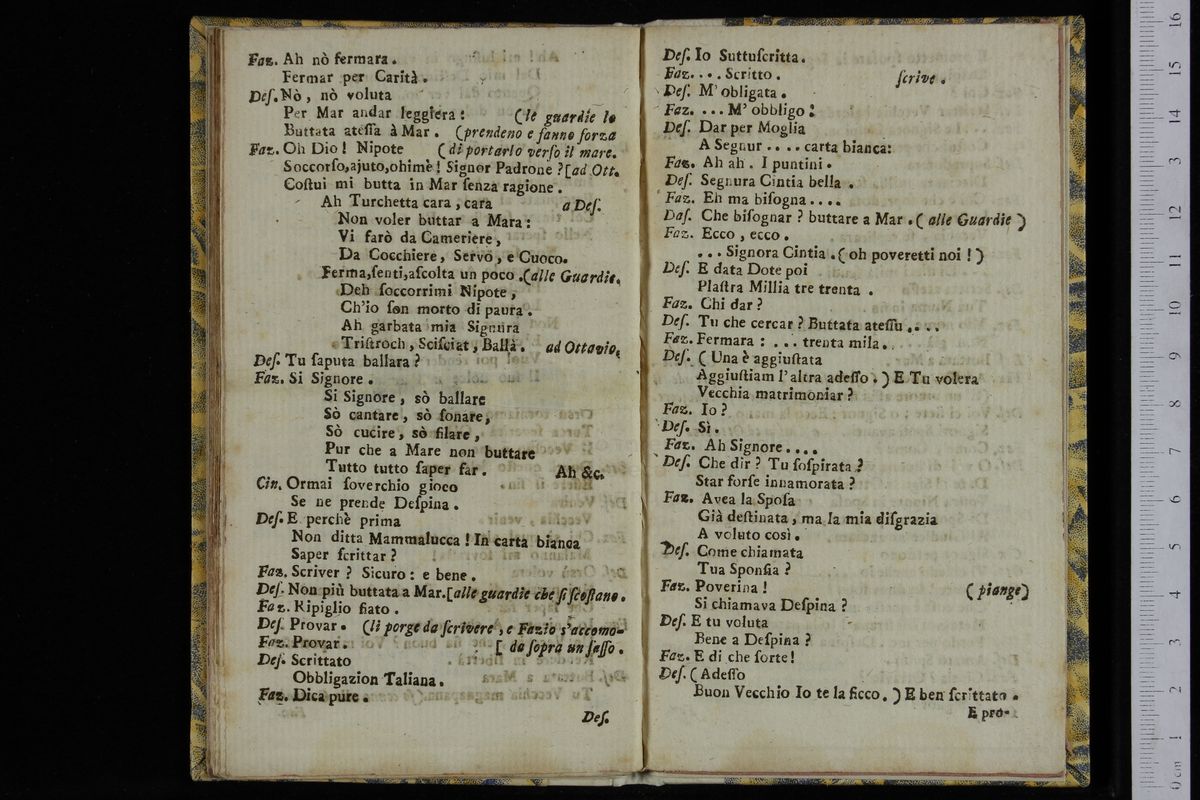 Faz. Ah nò fermara.
Fermar per Carità.
Deſ. Nò, nò voluta
Per Mar andar leggiera: (le guardie lo
Buttata ateſſa à Mar. (prendeno e fanno forza
Faz. Oh Dio! Nipote (di portarlo verſo il mare.
Soccorſo, ajuto, ohimè! Signor Padrone? [ad Ott.
Coſtui mi butta in Mar ſenza ragione.
Ah Turchetta cara, cara a Deſ.
Non voler buttar a Mara:
Vi farò da Cameriere,
Da Cocchiere, Servo, e Cuoco.
Ferma, ſenti, aſcolta un poco. (alle Guardie.
Deh ſoccorrimi Nipote,
Ch'io ſon morto di paura.
Ah garbata mia Signura
Triſtroch, Sciſciat, Ballà. ad Ottavio.
Deſ. Tu ſaputa ballara?
Faz. Si Signore.
Si Signore, sò ballare
Sò cantare, sò ſonare,
Sò cucire, sò filare,
Pur che a Mare non buttare
Tutto tutto ſaper far. Ah &c.
Cin. Ormai ſoverchio gioco
Se ne prende Deſpina.
Deſ. E perchè prima
Non ditta Mammalucca! In carta bianca
Saper ſcrittar?
Faz. Scriver? Sicuro: e bene.
Deſ. Non più buttata a Mar. [alle guardie che ſi ſcoſtano.
Faz. Ripiglio fiato.
Deſ. Provar. (li porge da ſcrivere, e Fazio s'accomo-
Faz. Provar. [da ſopra un ſaſſo.
Deſ. Scrittato
Obbligazion Taliana.
Faz. Dica pure.
Deſ.
Deſ. Io Suttuſcritta.
Faz. . . . Scritto. ſcrive.
Deſ. M'obligata.
Faz. . . . M'obbligo:
Deſ. Dar per Moglia
A Segnur . . . . carta bianca:
Faz. Ah ah. I puntini.
Deſ. Segnura Cintia bella.
Faz. Eh ma biſogna . . . .
Daſ. Che biſognar? buttare a Mar. (alle Guardie)
Faz. Ecco, ecco.
. . . Signora Cintia. (oh poveretti noi!)
Deſ. E data Dote poi
Plaſtra Millia tre trenta.
Faz. Chi dar?
Deſ. Tu che cercar? Buttata ateſſu . . . .
Faz. Fermara: . . . trenta mila.
Deſ. (Una è aggiuſtata
Aggiuſtiam l'altra adeſſo.) E Tu volera
Vecchia matrimoniar?
Faz. Io?
Deſ. Sì.
Faz. Ah Signore . . . .
Deſ. Che dir? Tu ſoſpirata?
Star forſe innamorata?
Faz. Avea la Spoſa
Già deſtinata, ma la mia diſgrazia
A voluto così.
Deſ. Come chiamata
Tua Sponſia?
Faz. Poverina! (piange)
Si chiamava Deſpina?
Deſ. E tu voluta
Bene a Deſpina?
Faz. E di che ſorte!
Deſ. (Adeſſo
Buon Vecchio Io te la ficco.) E ben ſcrittato.
E pro-